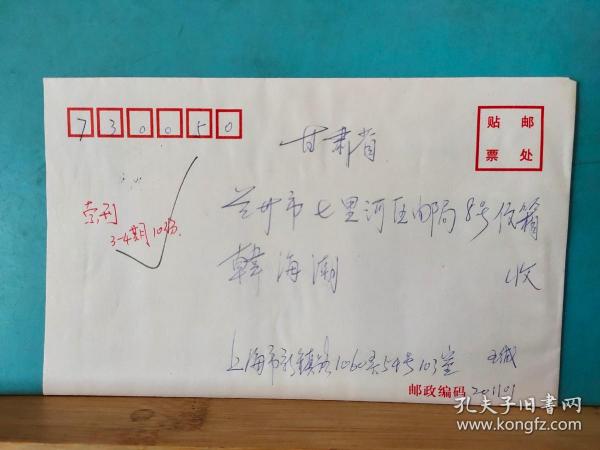 730050
贴 邮
票 处
甘肃省
兰州市七里河区邮局8号信箱
韩海潮 收
索刊
3-4期10份.
上海市新镇路1060弄54号103室 王诚
邮政编码 201101
孔夫子旧书网
www.kongfz.com